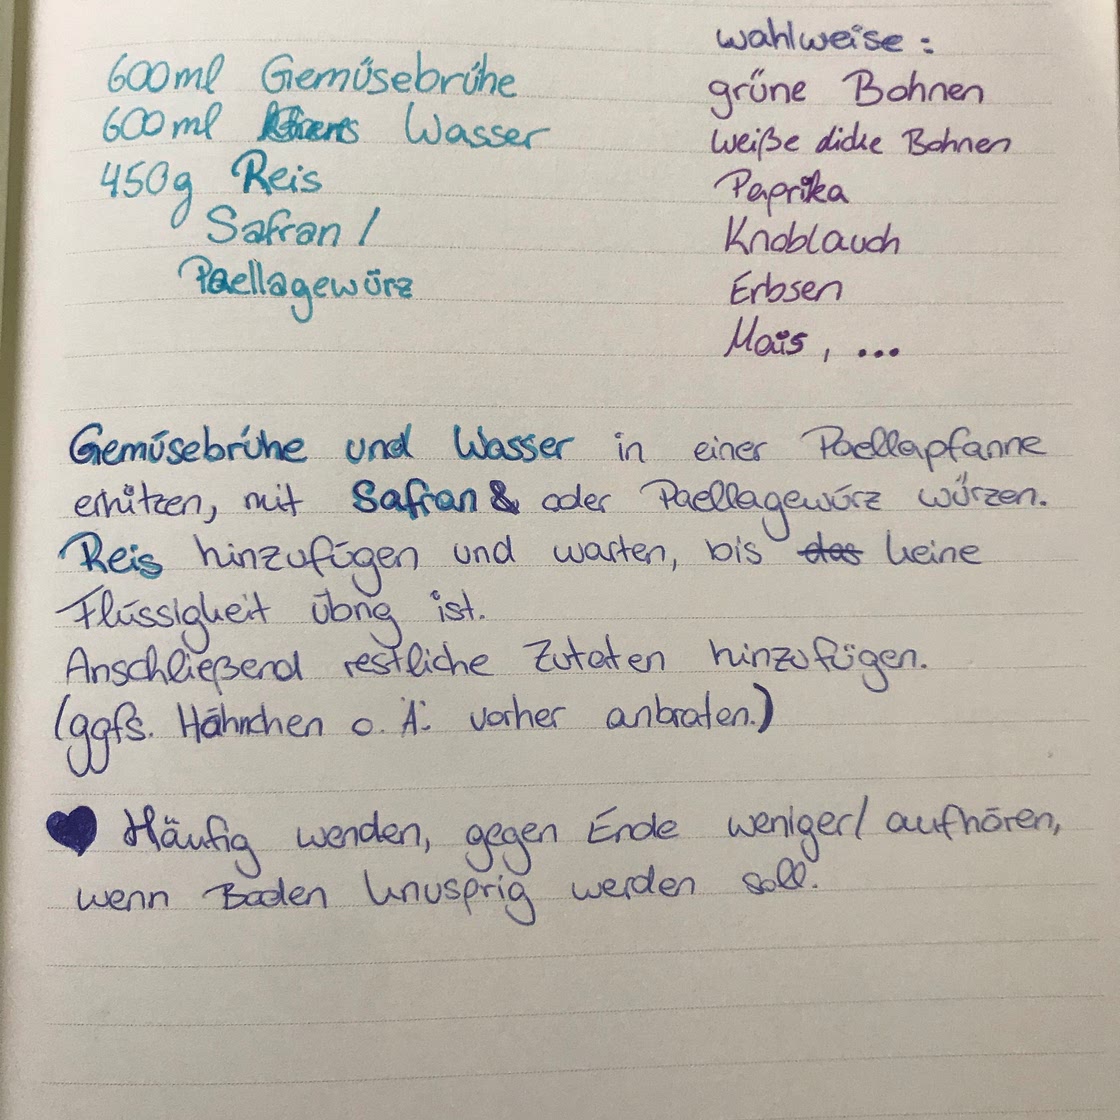 600ml Gemüsebrühe
600ml Wasser
450g Reis
Safran /
Paellagewürz
wahlweise :
grüne Bohnen
weiße dicke Bohnen
Paprika
Knoblauch
Erbsen
Mais, ...
Gemüsebrühe und Wasser in einer Paellapfanne
erhitzen, mit Safran & oder Paellagewürz würzen.
Reis hinzufügen und warten, bis das keine
Flüssigkeit übrig ist.
Anschließend restliche Zutaten hinzufügen.
(ggfs. Hähnchen o. Ä. vorher anbraten.)
♥ Häufig wenden, gegen Ende weniger/ aufhören,
wenn Boden knusprig werden soll.